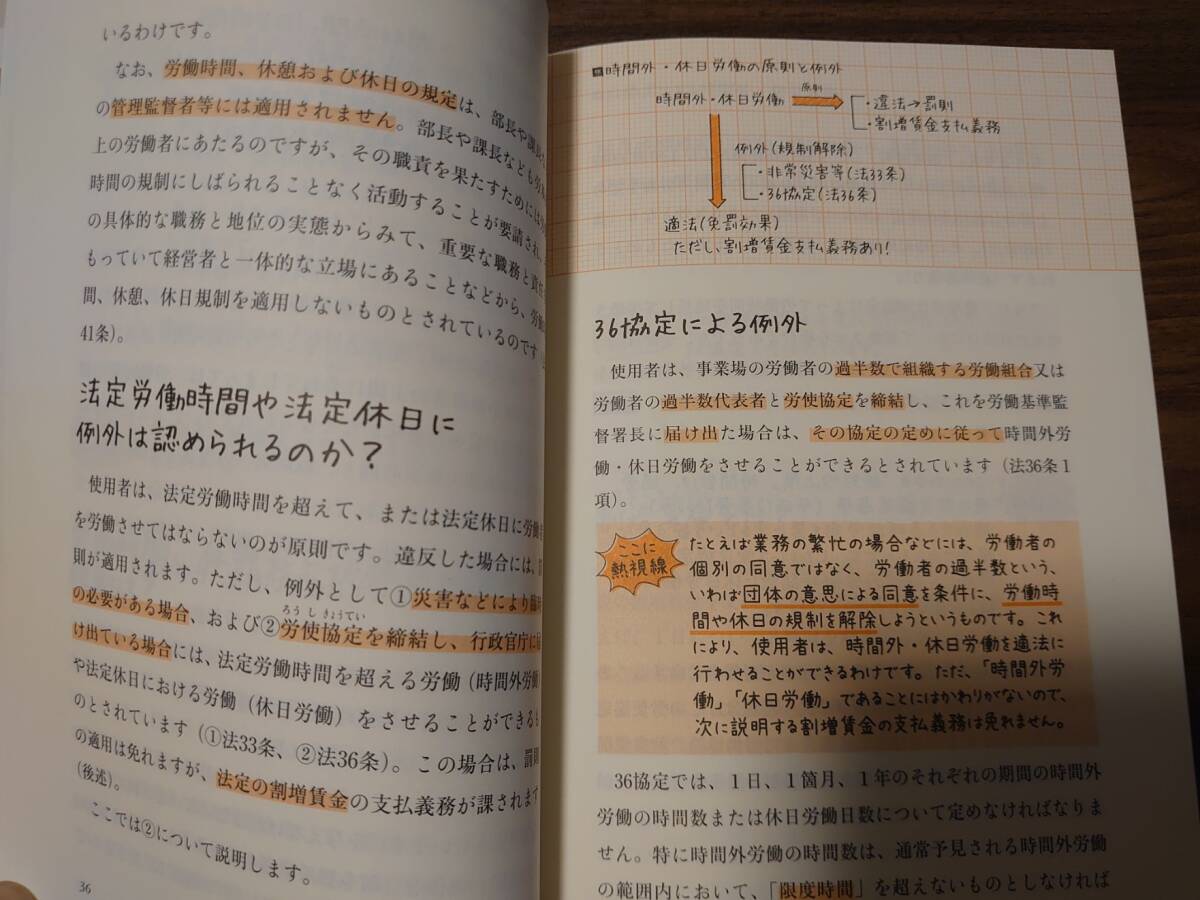 いるわけです。
なお、労働時間、休憩および休日の規定は、部長や課長な
の管理監督者等には適用されません。部長や課長なども労
上の労働者にあたるのですが、その職責を果たすためには
時間の規制にしばられることなく活動することが要請され
の具体的な職務と地位の実態からみて、重要な職務と責
もっていて経営者と一体的な立場にあることなどから、労働
間、休憩、休日規制を適用しないものとされているのです
41条)。
法定労働時間や法定休日に
例外は認められるのか?
使用者は、法定労働時間を超えて、または法定休日に労働
を労働させてはならないのが原則です。違反した場合には、
則が適用されます。ただし、例外として①災害などにより臨時
の必要がある場合、および②労使協定を締結し、行政官庁に
ろうしきょうてい
け出ている場合には、法定労働時間を超える労働(時間外労働
や法定休日における労働(休日労働)をさせることができるも
のとされています(①法33条、②法36条)。この場合は、罰則
の適用は免れますが、法定の割増賃金の支払義務が課されます
(後述)。
ここでは②について説明します。
36
■時間外・休日労働の原則と例外
時間外・休日労働
原則
・違法→罰則
・割増賃金支払義務
例外(規制解除)
・非常災害等(法33条)
・36協定(法36条)
適法(免罰効果)
ただし、割増賃金支払義務あり!
36協定による例外
使用者は、事業場の労働者の過半数で組織する労働組合又は
労働者の過半数代表者と労使協定を締結し、これを労働基準監
督署長に届け出た場合は、その協定の定めに従って時間外労
働・休日労働をさせることができるとされています(法36条1
項)。
ここに
熱視線
たとえば業務の繁忙の場合などには、労働者の
個別の同意ではなく、労働者の過半数という、
いわば団体の意思による同意を条件に、労働時
間や休日の規制を解除しようというものです。これ
により、使用者は、時間外・休日労働を適法に
行わせることができるわけです。ただ、「時間外労
働」「休日労働」であることにはかわりがないので、
次に説明する割増賃金の支払義務は免れません。
36協定では、1日、1箇月、1年のそれぞれの期間の時間外
労働の時間数または休日労働日数について定めなければなりま
せん。特に時間外労働の時間数は、通常予見される時間外労働
の範囲内において、「限度時間」を超えないものとしなければ